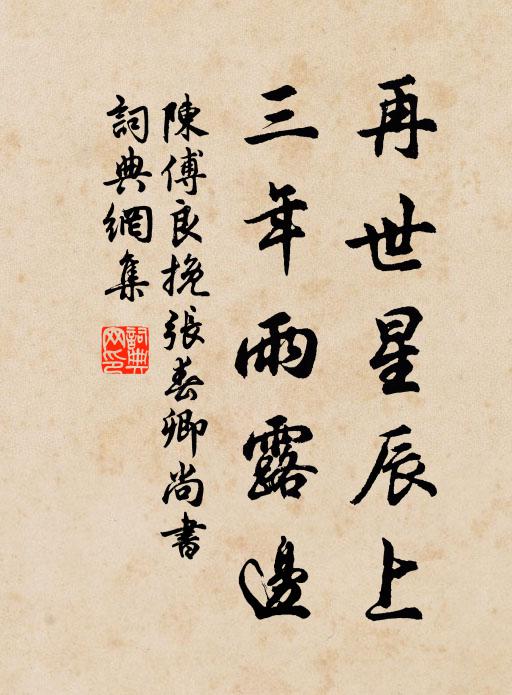 再世星辰上
三年雨露邊
陳傅良挽張春卿尚書
詞典網集
詞典網印